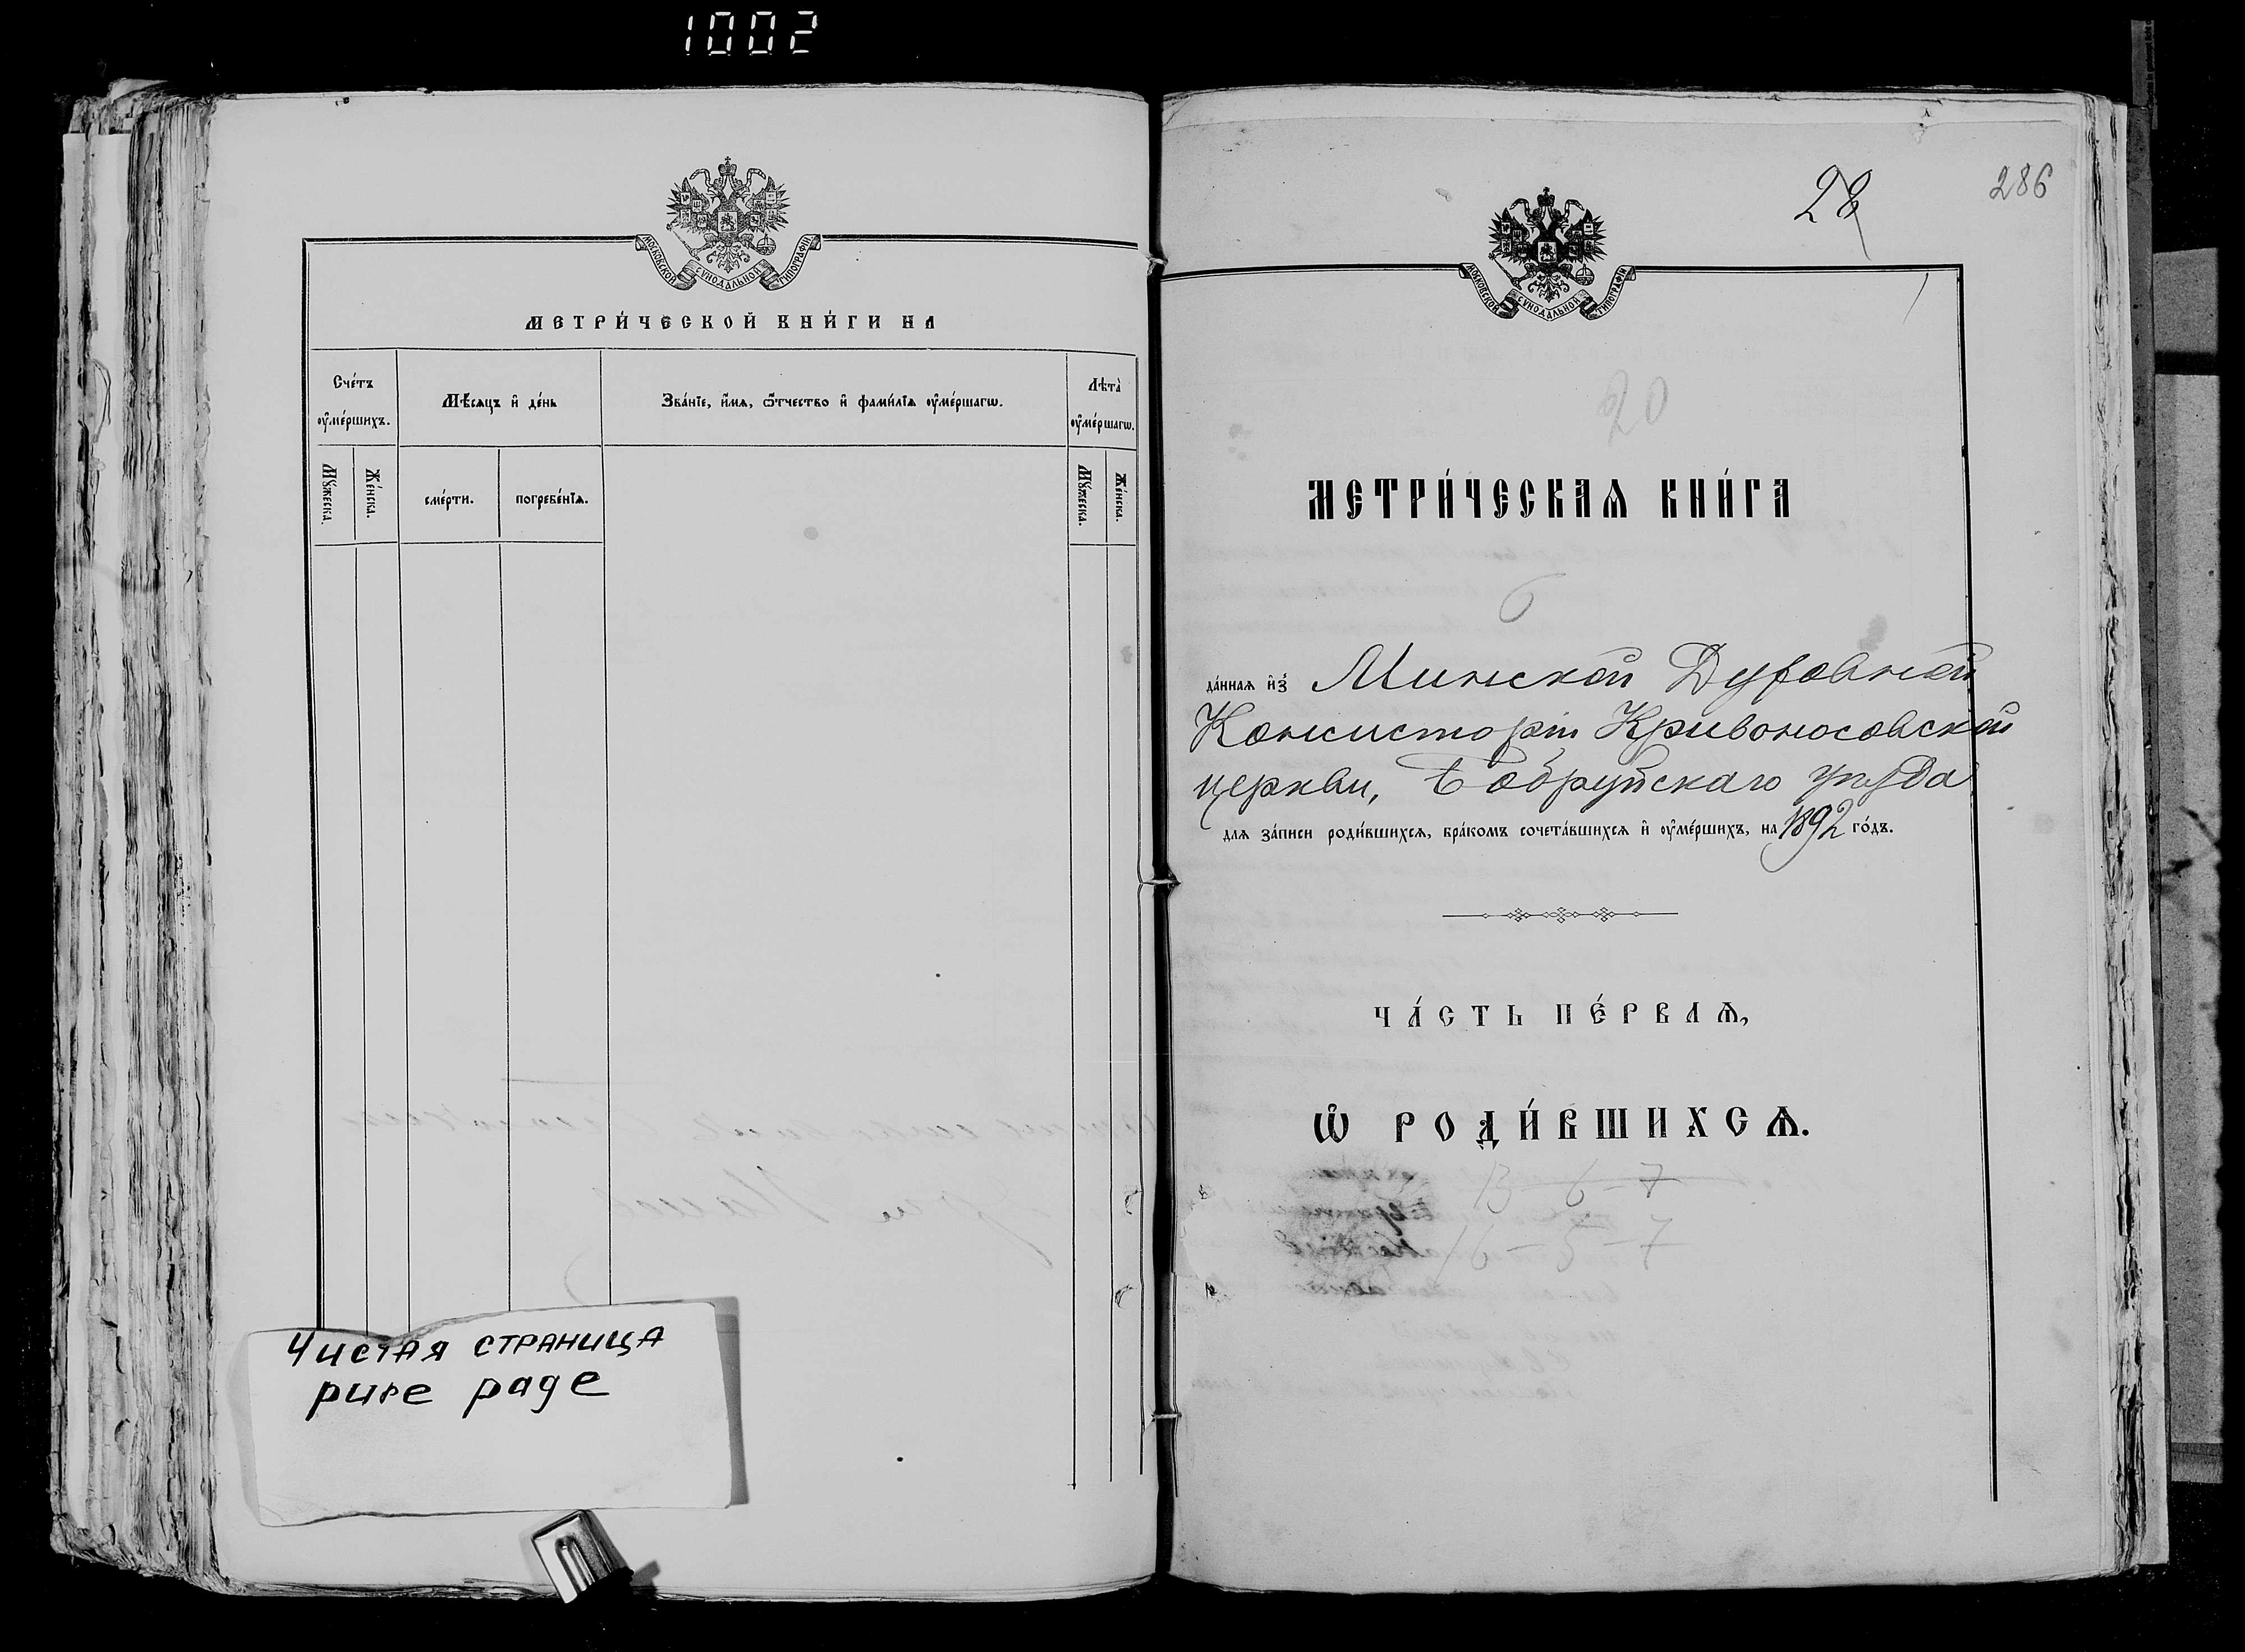 1002
МОСКОВСКОЙ СѴНОДАЛЬНОЙ ТИПОГРАФІИ
МЕТРИ́ЧЕСКОЙ КНИ́ГИ НА
Сче́тъ ᲂу҆ме́ршихъ.
Мѣ́сяцъ и҆ де́нь
Зва́нїе, и҆́мѧ, ѻ҆́тчество и҆ фами́лїѧ ᲂу҆ме́ршагѡ.
Лѣта̀ ᲂу҆ме́ршагѡ.
Мꙋ́жеска.
Же́нска.
сме́рти.
погребе́нїѧ.
Мꙋ́жеска.
Же́нска.
Чистая страница
pure page
28
286
МОСКОВСКОЙ СѴНОДАЛЬНОЙ ТИПОГРАФІИ
20
МЕТРИ́ЧЕСКАѦ КНИ́ГА
6
да́ннаѧ и҆з̾ Минской Духовной
Консисторіи Кривоносовской
церкви, Бобруйскаго уѣзда
длѧ за́писи роди́вшихсѧ, бра́комъ сочета́вшихсѧ и҆ ᲂу҆ме́ршихъ, на 1892 го́дъ.
ЧА́СТЬ ПЕ́РВАѦ,
Ѽ РОДИ́ВШИХСѦ.
13 – 6 – 7
16 – 5 – 7